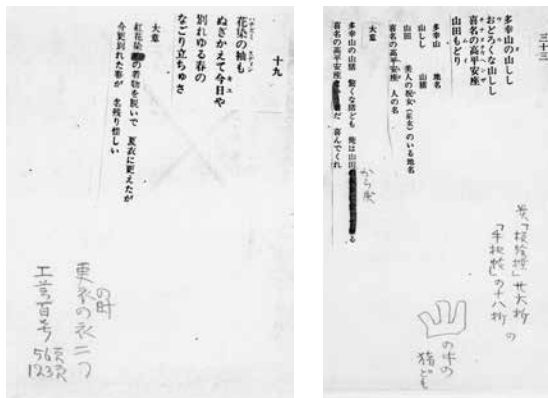 三十三
多幸山の山しし
おどろくな山しし
喜名の高平安座
山田もどり
多幸山 地名
山しし 山猪
山田 美人の祝女(巫女)のいる地名
喜名の高平安座 人の名
大意
多幸山の山猪 驚くな猪ども 俺は山田
喜名の高平安座 だ 喜んでくれ
から戻
の中の
猪ども
十九
花染の袖も
ぬぎかえて今日や
別れゆる春の
なごり立ちゅさ
大意
紅花染 の着物を脱いで 夏衣に更えたが
今更別れた春が 名残り惜しい
の時
更衣の衣二つ
工芸百号 56頁
123頁